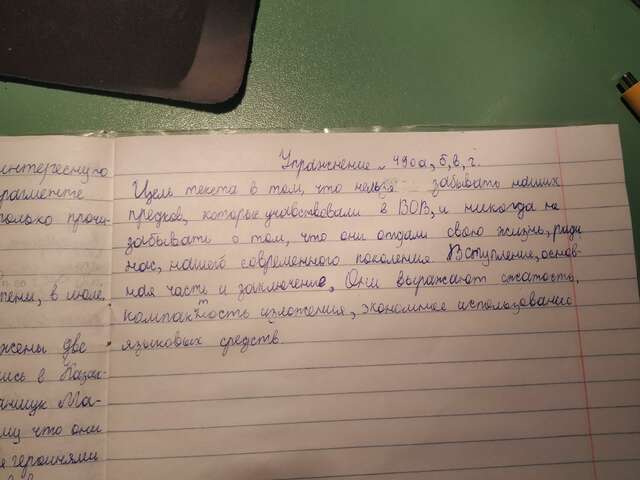 интересную
рагменте
только прочи-
тени, в июле
жены две
ись в Казах-
аншук Ма-
му что они
я героинями
Упражнение 490а, б, в, г.
Цель текста в том, что нельзя забывать наших
предков, которые учавствовали в ВОВ, и никогда не
забывать о том, что они отдали свою жизнь, ради
нас, нашего современного поколения. Вступление, основ-
ная части и заключение, Они выражают сжатость,
компактность изложения, экономное использование
языковых средств.